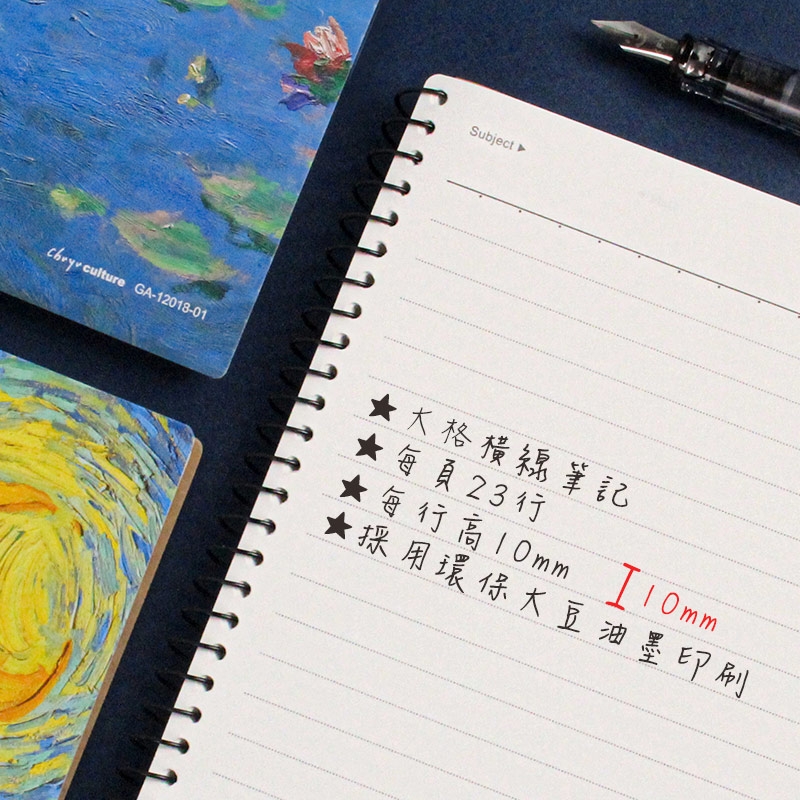 Subject ▶
chryr culture GA-12018-01
★大格橫線筆記
★每頁23行
★每行高10mm
10mm
★採用環保大豆油墨印刷